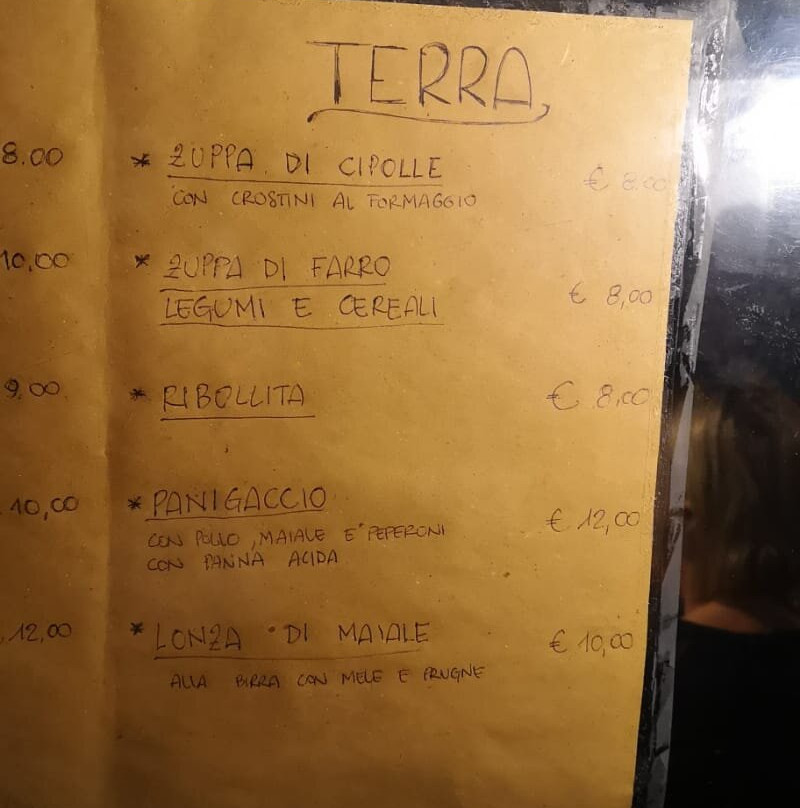 TERRA
8.00
* ZUPPA DI CIPOLLE € 8.00
CON CROSTINI AL FORMAGGIO
10,00
* ZUPPA DI FARRO
LEGUMI E CEREALI € 8,00
9,00
* RIBOLLITA € 8,00
10,00
* PANIGACCIO € 12,00
CON POLLO, MAIALE E PEPERONI
CON PANNA ACIDA
12,00
* LONZA DI MAIALE € 10,00
ALLA BIRRA CON MELE E PRUGNE